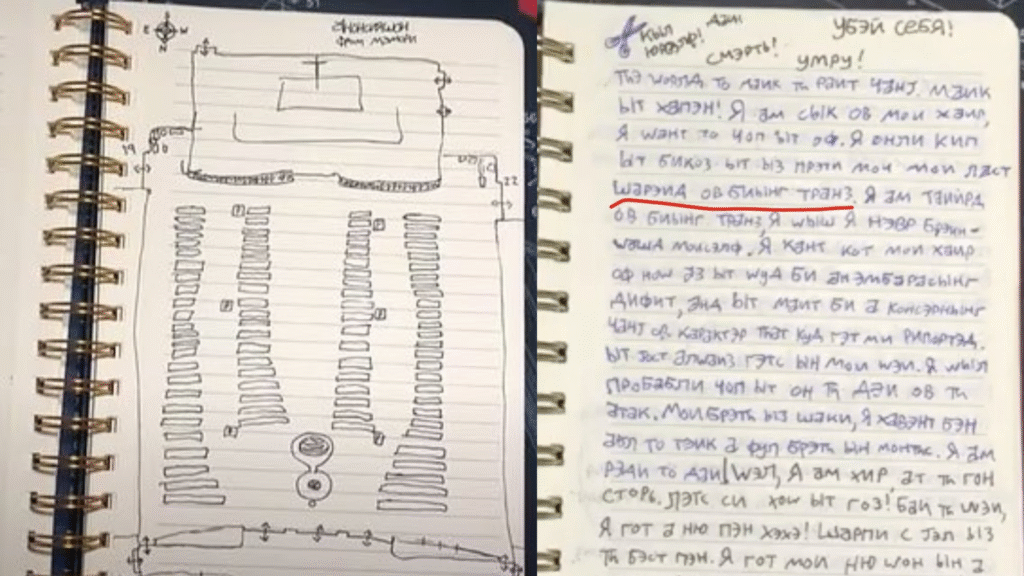 E W
Фром мэмори
22
Кыл
Дэи
СМЭРТЬ!
УБЭЙ СЕБЯ!
УМРУ!
ТЬЭ WОРЛД ТО МЭИК ТҺ РАИТ ЧЭНЈ. МЭИК
ЫТ ХАПЭН! Я ЭМ СЫК ОВ МОИ ХЭИР,
Я WАНТ ТО ЧОП ЫТ ОФ. Я ОНЛИ КИП
ЫТ БИКОЗ ЫТ ЫЗ ПРЭТИ МОЧ МОИ ЛАСТ
ОВ БИЫНГ ТРАНЗ. Я ЭМ ТАИЙРД
ОВ БИЫНГ ТРАНЗ, Я WЫШ Я НЭВР БРЭИН-
WАШД МОИСЭЛФ. Я КАНТ КОТ МОИ ХЭИР
ОФ НОW ЭЗ ЫТ WУД БИ ЭН ЭМБАРАСЫНГ
ДИФИТ, ЭНД ЫТ МЭИТ БИ А КОНСЭРНЫНГ
ЧЭНЈ ОВ КАРАКТЭР ТҺАТ КУД ГЭТ МИ РИПОРТЭД.
ЫТ ЈОСТ АЛWЭИЗ ГЭТС ЫН МОИ WЭИ. Я WЫЛ
ПРОБАБЛИ ЧОП ЫТ ОН ТҺ ДЭИ ОВ ТҺ
АТАК. МОИ БРЭТҺ ЫЗ ШЭКИ, Я ХАВЭНТ БЭН
ЭБЛ ТО ТЭИК А ФУЛ БРЭТҺ ЫН МОНТҺС. Я АМ
РЭДИ ТО ДАИ WЭЛ, Я АМ ХИР, АТ ТҺ ГОН
СТОРЬ. ЛЭТС СИ ХОW ЫТ ГОЗ! БАИ ТҺ WЭИ,
Я ГОТ А НЮ ПЭН ХЭХЭ! ШАРПИ С ЈЭЛ ЫЗ
ТҺ БЭСТ ПЭН. Я ГОТ МОИ НЮ WОН ЫН А